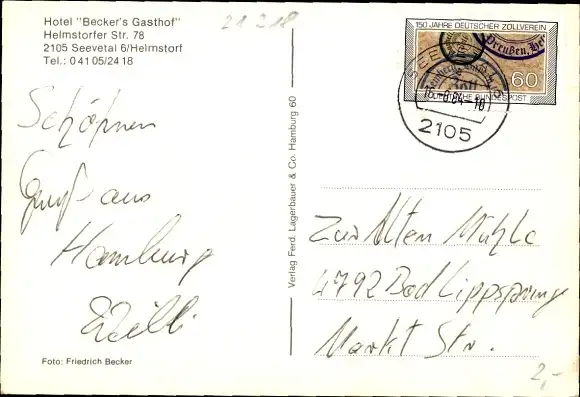 Hotel "Becker's Gasthof"
Helmstorfer Str. 78
2105 Seevetal 6/Helmstorf
Tel.: 0 41 05/24 18
21 2 18
150 JAHRE DEUTSCHER ZOLLVEREIN
Preußen,
60
DEUTSCHE BUNDESPOST
84
2105
Schönen
Gruß aus
Hamburg
Willi
Verlag Ferd. Lagerbauer & Co. Hamburg 60
Zur Alten Mühle
4792 Bad Lippspringe
Markt Str.
Foto: Friedrich Becker
2,-